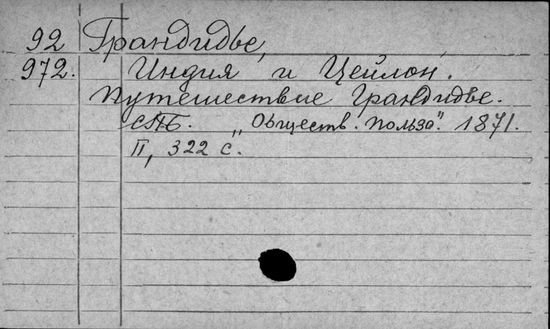 92 Грандидье,
972. Индия и Цейлон.
Путешествие Грандидье.
СПБ. „Обществ. Польза". 1871.
II, 322 с.